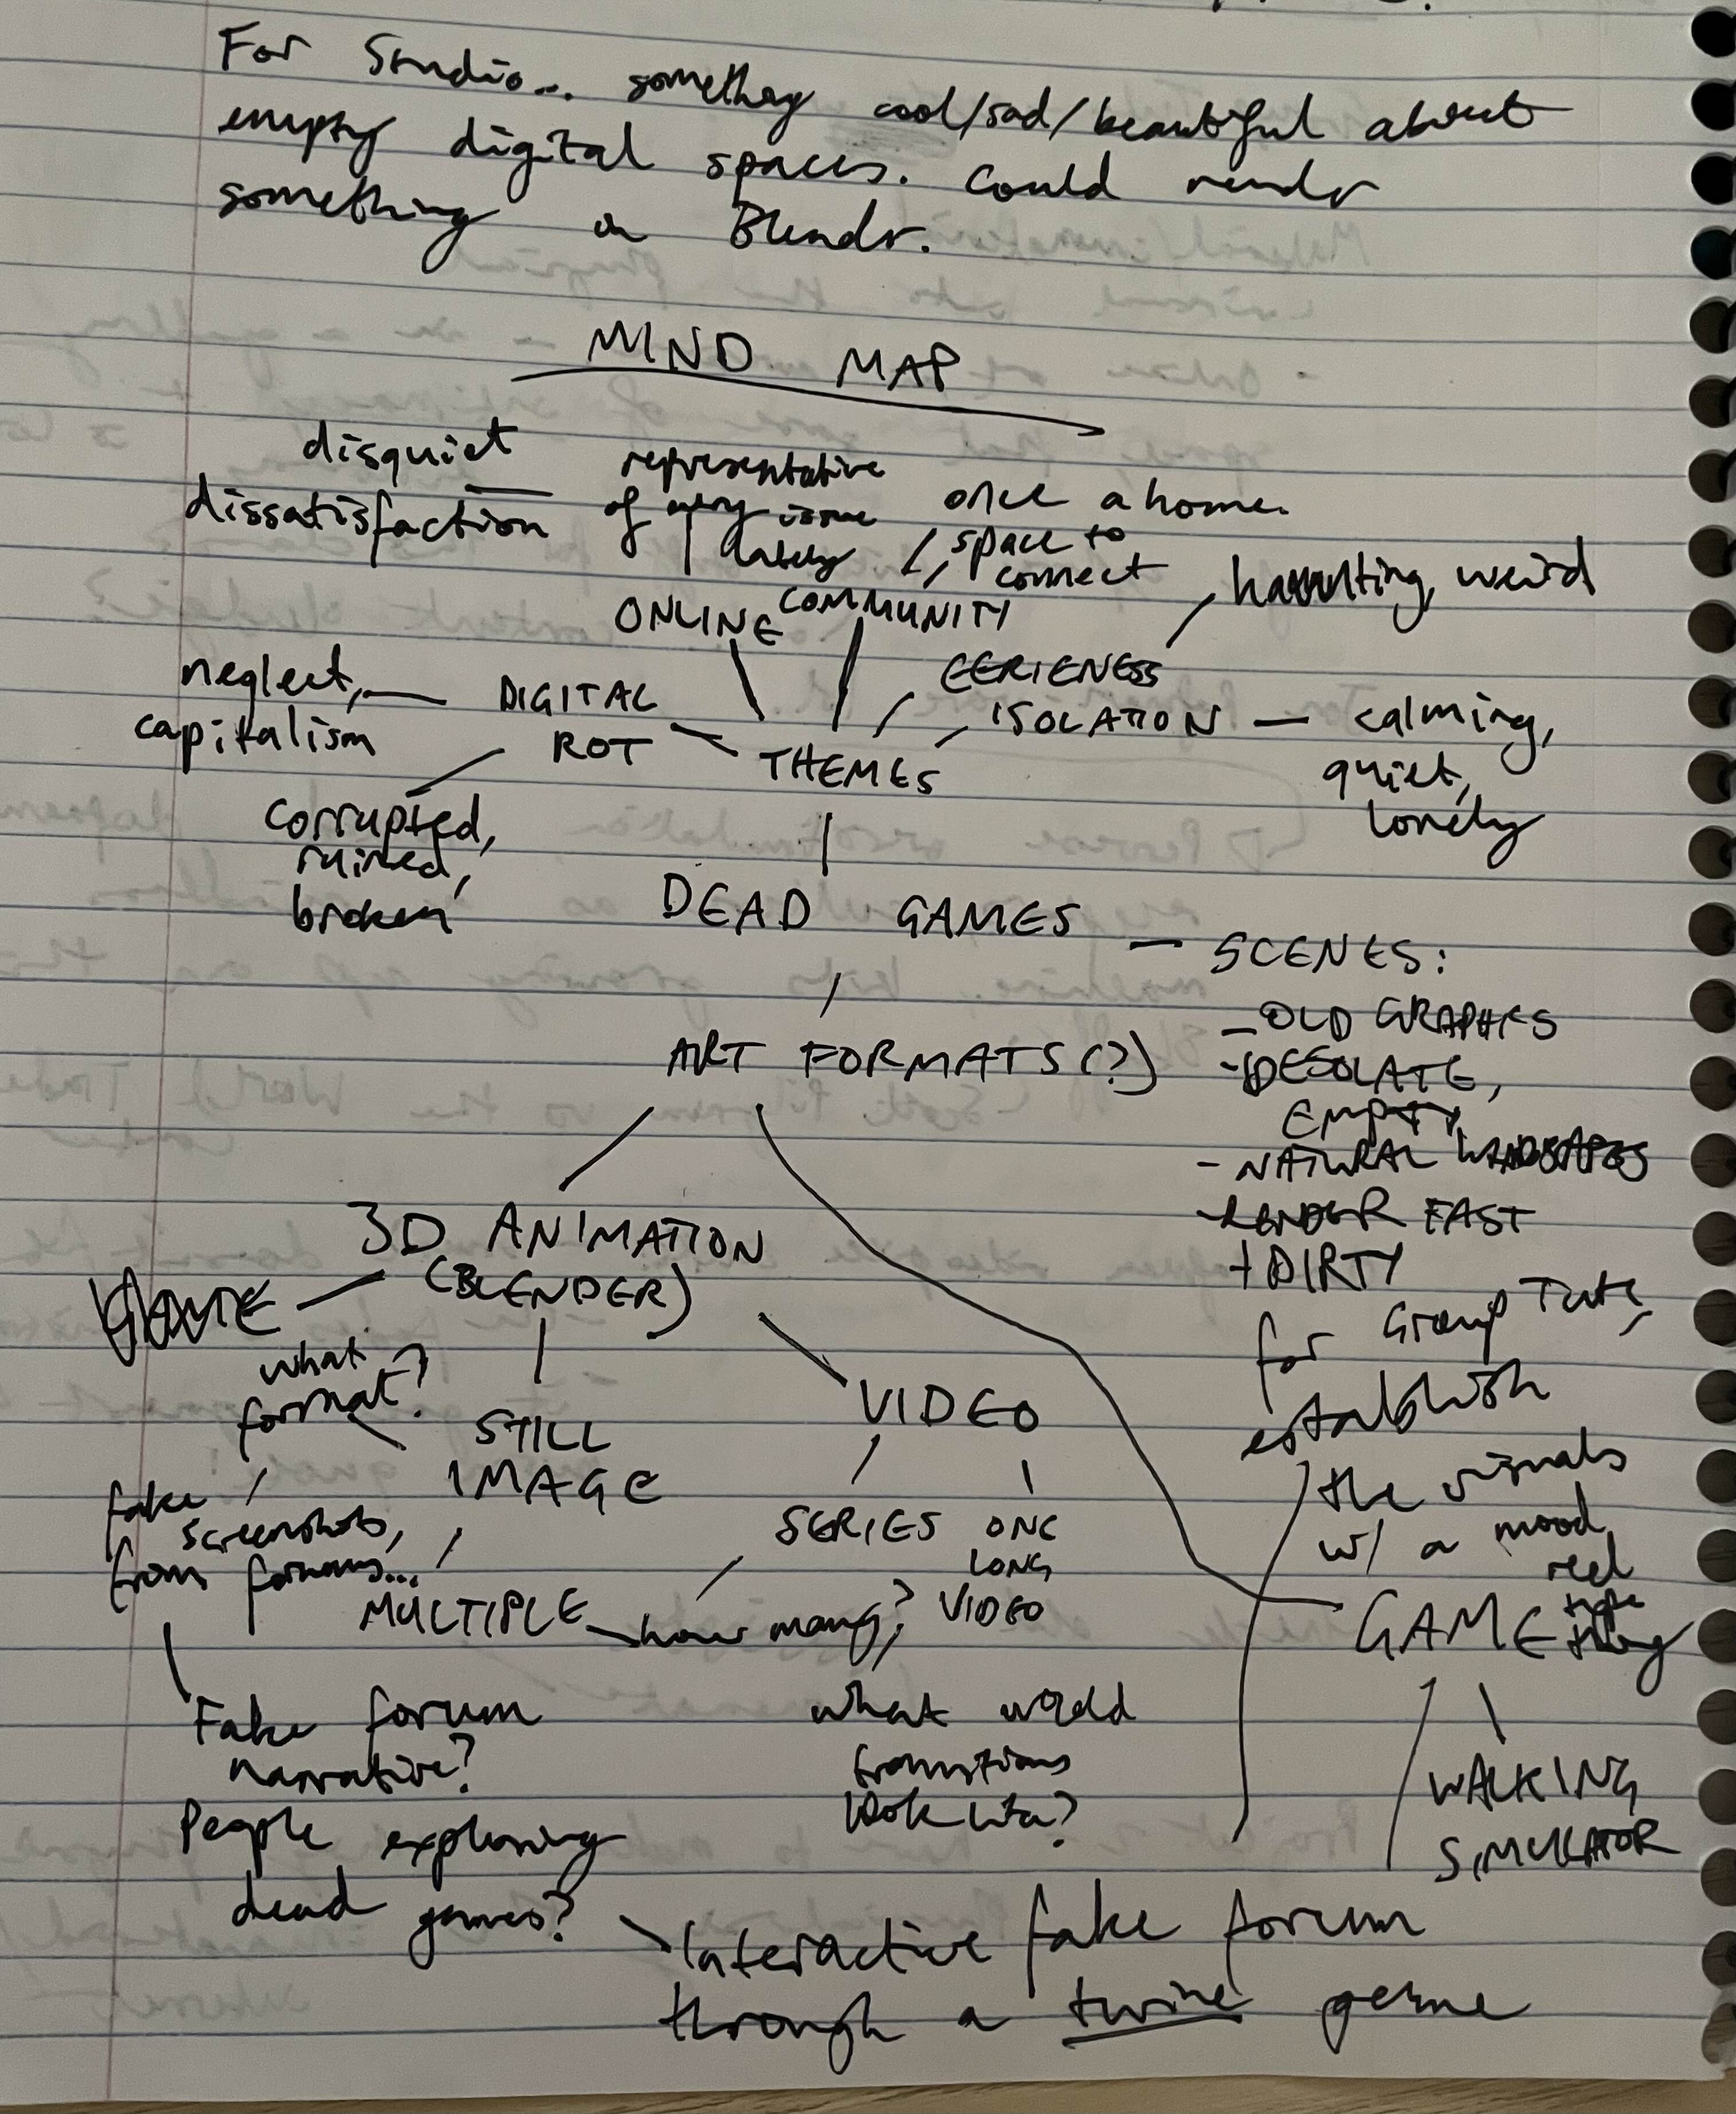 For Studio... something cool/sad/beautiful about
empty digital spaces. Could render
something in Blender.
MIND MAP
disquiet
dissatisfaction
representative
of every issue
lately
once a home.
space to
connect
haunting, weird
ONLINE COMMUNITY
EERIENESS
ISOLATION
calming,
quiet,
lonely
neglect,
capitalism
DIGITAL
ROT
THEMES
corrupted,
ruined,
broken
DEAD GAMES
SCENES:
- OLD GRAPHICS
- DESOLATE,
EMPTY
- NATURAL LANDSCAPES
- RENDER FAST
+ DIRTY
ART FORMATS (?)
for Group Tute,
establish
the visuals
w/ a mood
reel
type
thing
3D ANIMATION
(BLENDER)
what
format?
STILL
IMAGE
VIDEO
fake
screenshots,
from forums...
SERIES
ONE
LONG
VIDEO
MULTIPLE
how many?
GAME
WALKING
SIMULATOR
Fake forum
narrative?
People exploring
dead games?
what would
transitions
look like?
Interactive fake forum
through a twine game